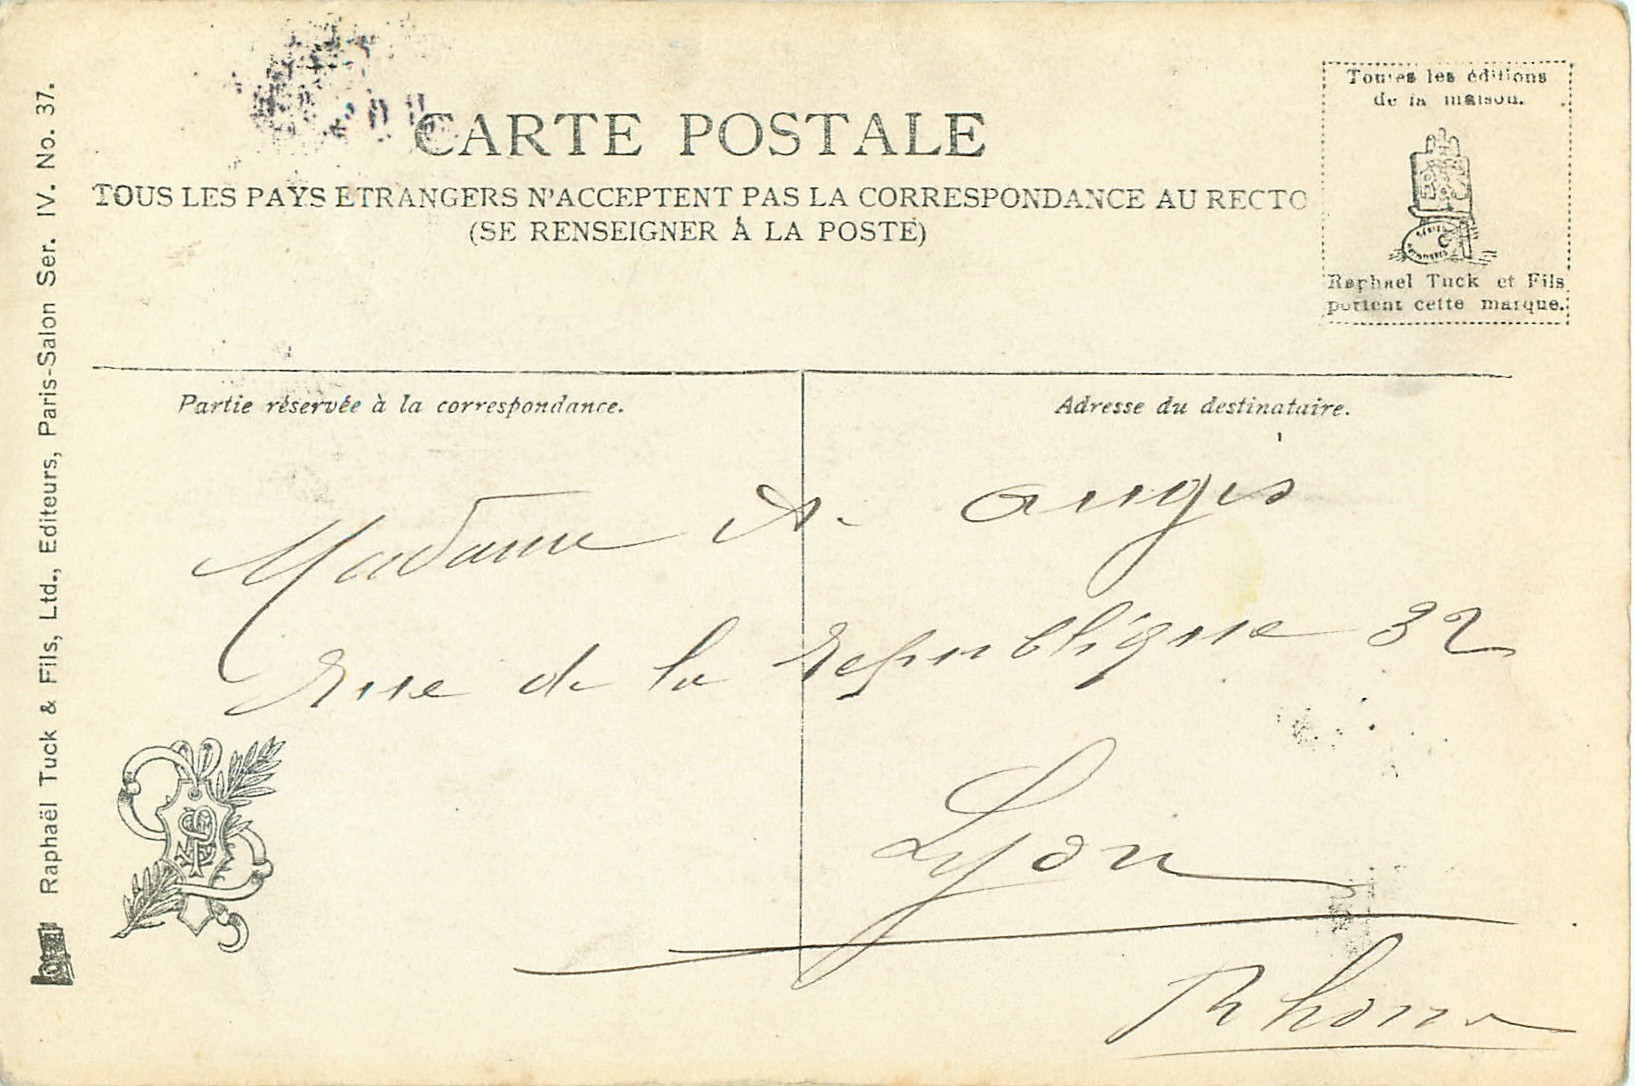 CARTE POSTALE
TOUS LES PAYS ETRANGERS N'ACCEPTENT PAS LA CORRESPONDANCE AU RECTO
(SE RENSEIGNER À LA POSTE)
Toutes les éditions
de la maison.
Raphael Tuck et Fils
portent cette marque.
Partie réservée à la correspondance.
Adresse du destinataire.
Madame A. Augis
rue de la republique 32
Lyon
Rhone
Raphaël Tuck & Fils, Ltd., Editeurs, Paris-Salon Ser. IV. No. 37.